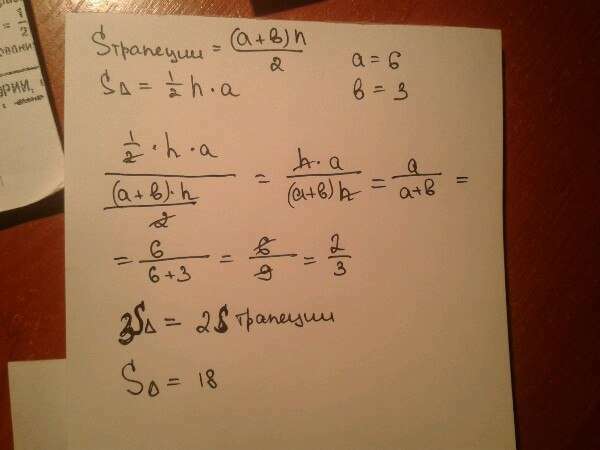 = 1/2
РИИ,
Sтрапеции = (a+b)h/2
a = 6
SΔ = 1/2 h·a
b = 3
(1/2 · h · a)/((a+b)·h/2) = h·a/(a+b)h = a/a+b =
= 6/6+3 = 6/9 = 2/3
3SΔ = 2Sтрапеции
SΔ = 18